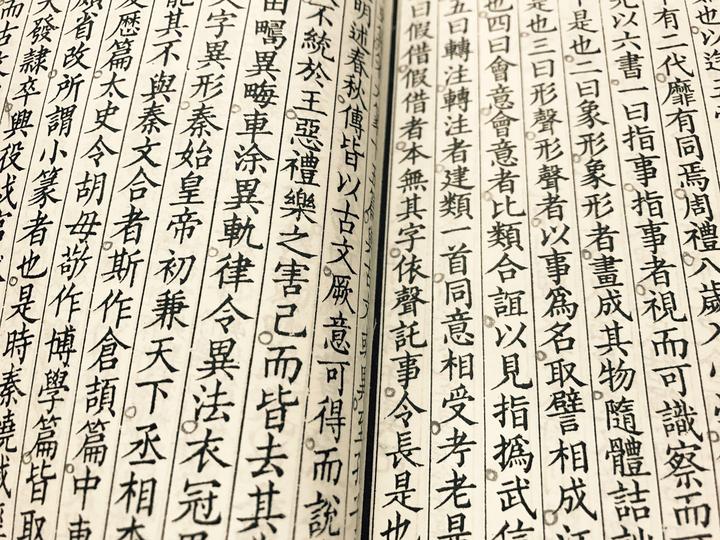 也以
有二代靡有同焉周禮八歲入小
先以六書一曰指事指事者視而可識察而
下是也二曰象形象形者畫成其物隨體詰詘
是也三曰形聲形聲者以事爲名取譬相成江
也四曰會意會意者比類合誼以見指撝武信
五曰轉注轉注者建類一首同意相受考老是
曰假借假借者本無其字依聲託事令長是也
明述春秋傳皆以古文厥意可得而說
不統於王惡禮樂之害己而皆去其
田疇異畮車涂異軌律令異法衣冠異
文字異形秦始皇帝初兼天下丞相
其不與秦文合者斯作倉頡篇中車
爰歷篇太史令胡毋敬作博學篇皆取
頗省改所謂小篆者也是時秦燒滅經
大發隸卒興役戍官
而古